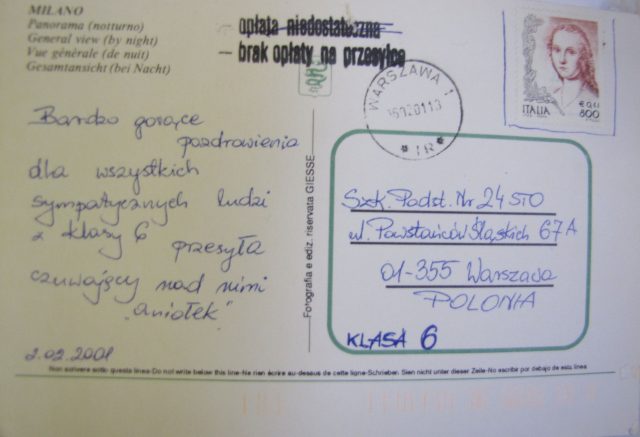 MILANO
Panorama (notturno)
General view (by night)
Vue générale (de nuit)
Gesamtansicht (bei Nacht)
- opłata niedostateczna
- brak opłaty na przesyłce
WARSZAWA 1
* 1R *
ITALIA
€ 0,41
800
Bardzo gorące
pozdrowienia
dla wszystkich
sympatycznych ludzi
z klasy 6 przesyła
czuwający nad nimi
"aniołek"
2.02.2001
Fotografia e ediz. riservata GIESSE
Szk. Podst. Nr 24 STO
ul. Powstańców Śląskich 67A
01-355 Warszawa
POLONIA
KLASA 6
Non scrivere sotto questa linea-Do not write below this line-Ne rien écrire au-dessous de cette ligne-Schrieben Sien nicht unter dieser Zeile-No escribir por debajo de esta linea